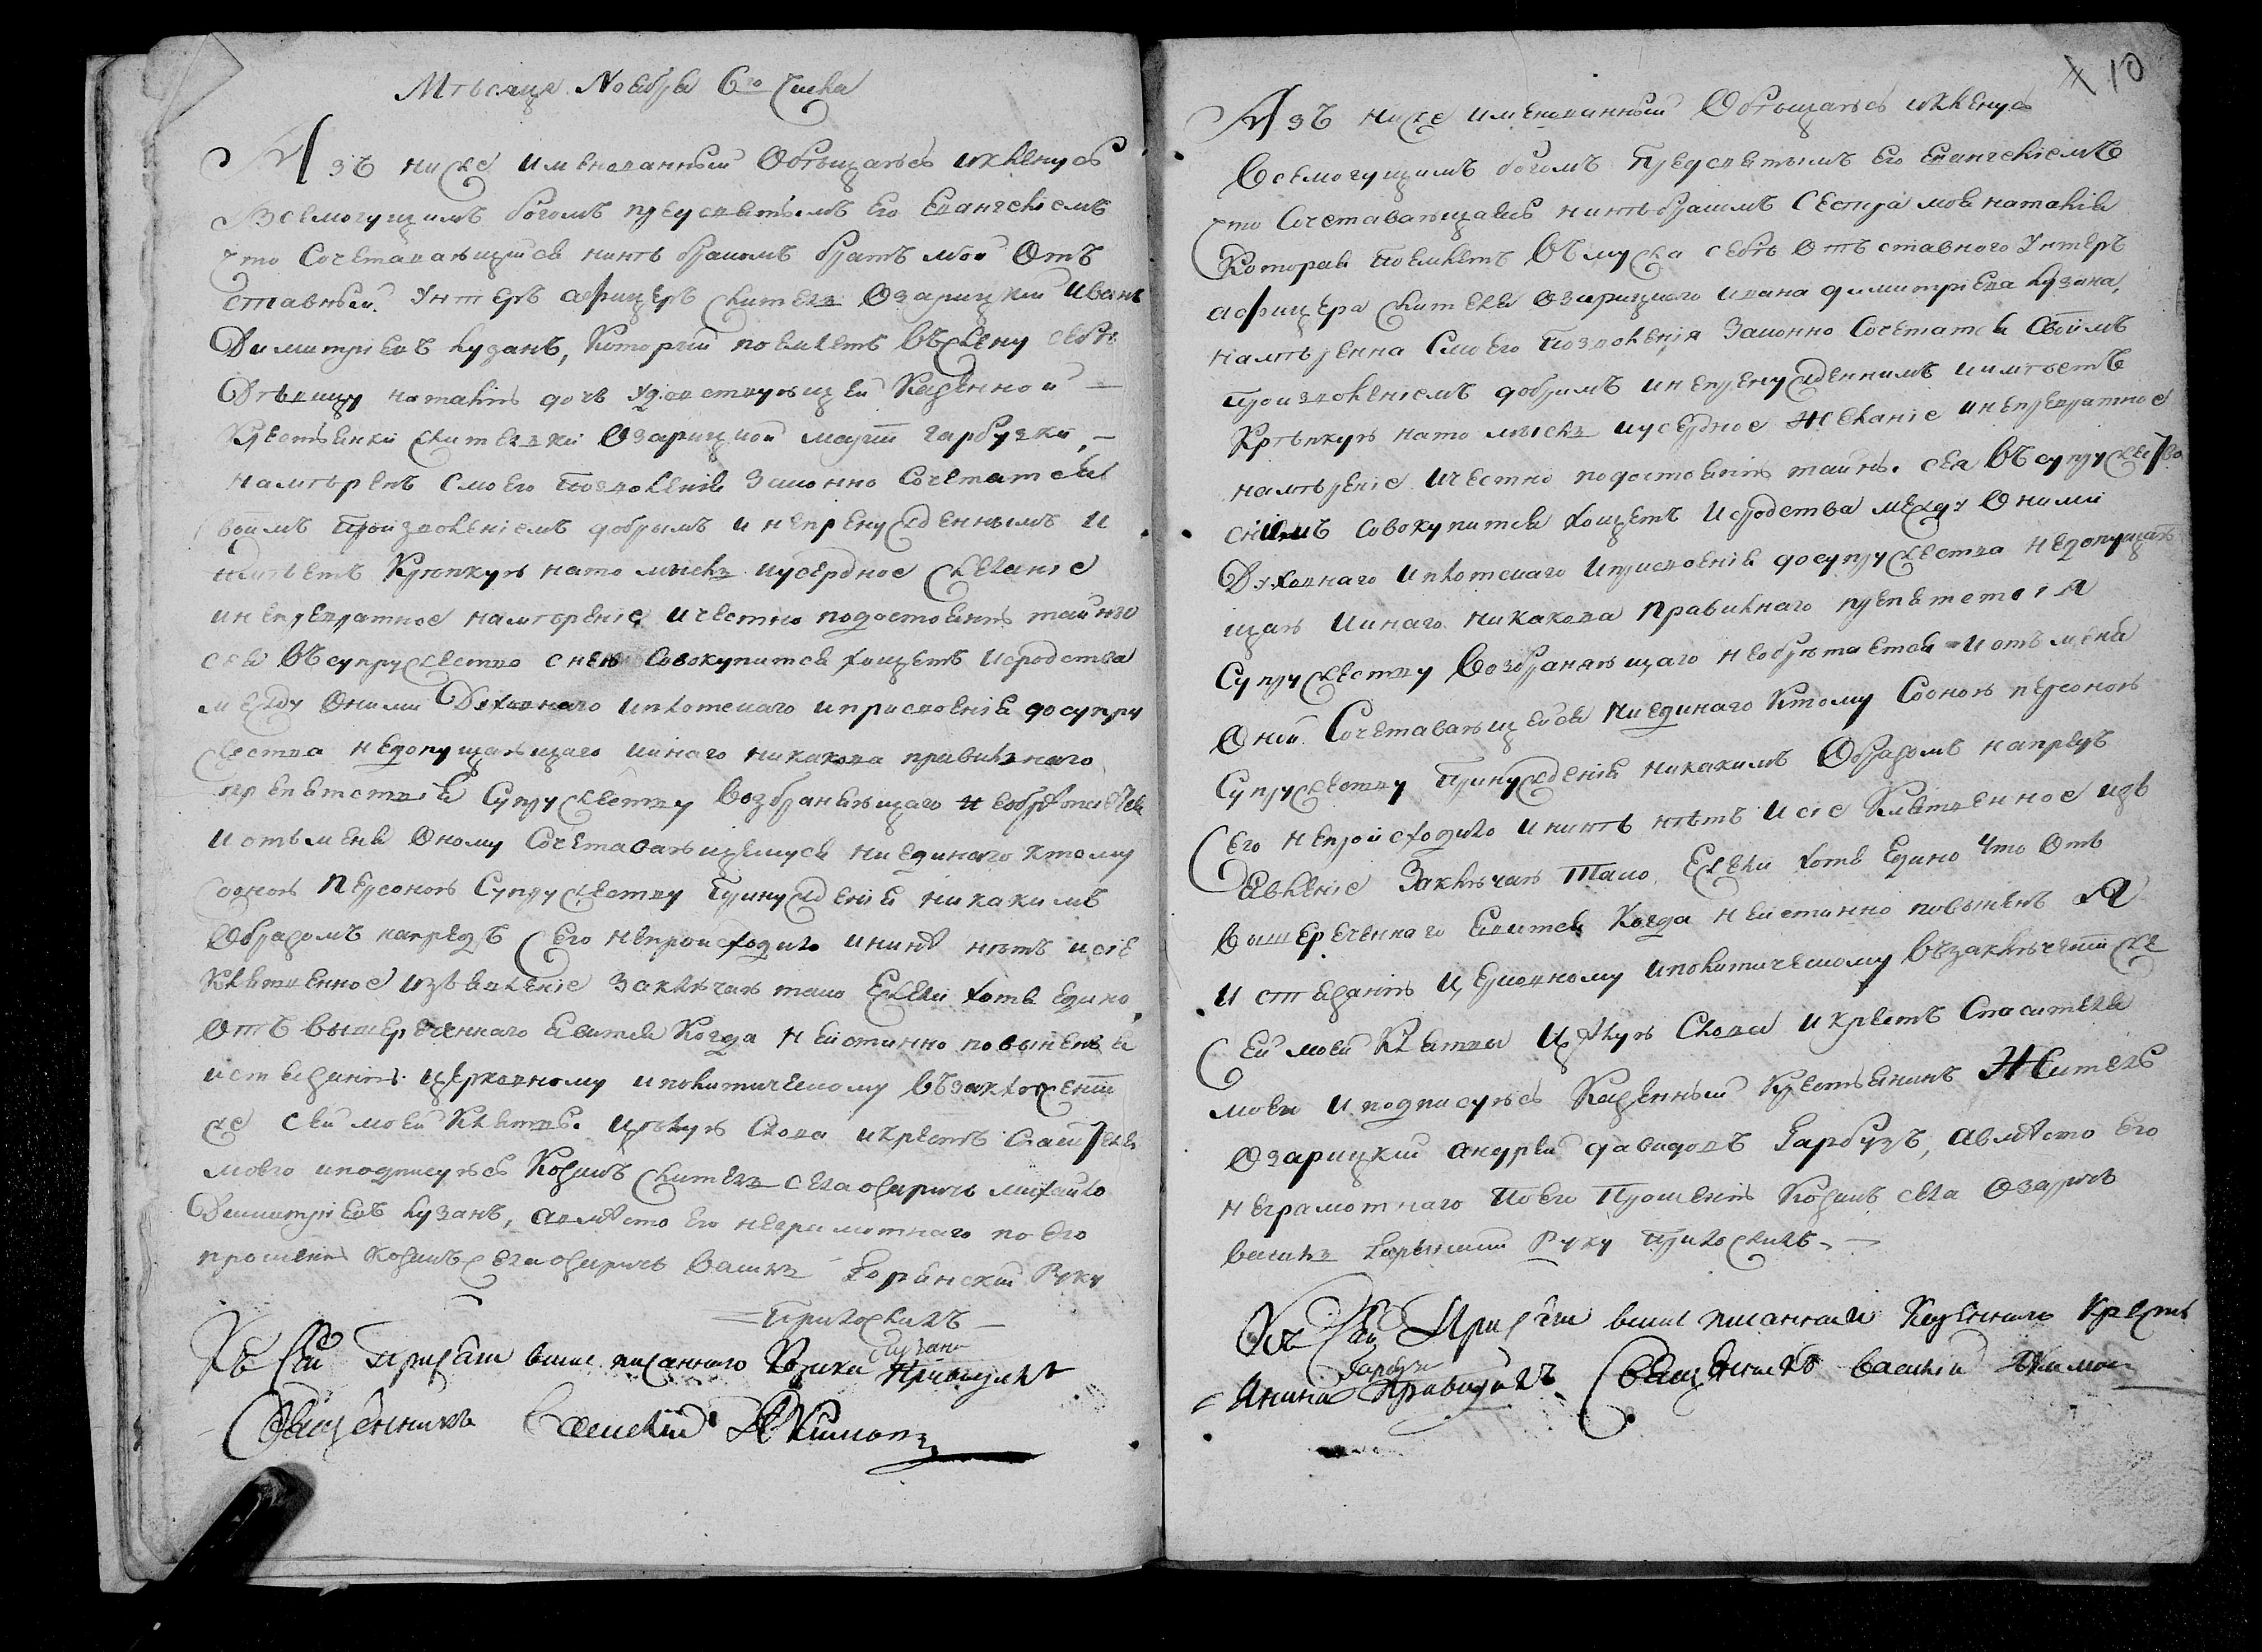 Мѣсяця Ноября 6го Числа
Азъ ниже именованный Обѣщаюсь и клянусь
Всемогущимъ богомъ пресвятымъ Его Евангелиемъ
что Сочетавающийся нинѣ бракомъ братъ мой Отъ
ставный Унтеръ афицеръ житель Озарицкий Иванъ
Димитриевъ кузанъ, Который поемлетъ въжену себѣ
Дѣвицу наталию дочь удовствующей Казенной
Крестьянки жителки Озарицкой марии гарбузки,
намѣренъ смоего позволения Законно Сочетатся
своимъ произволениемъ добрымъ и непренужденнымъ и
имѣетъ Крѣпкую нато мысль иусердное желание
инепревратное намѣрение ичестно подостоянию тайны
сея въсупружество снею Совокупится хощетъ исродства
между Оними Духовнаго иплотскаго иприсвоения досупру
жества недопущающаго иинаго никакова правилнаго
препятствия Супружеству возбраняющаго необрѣтается
и отъ меня Оному Сочетавающемуся ниединаго ктому
Содною персоною Супружеству принуждения никакимъ
Образомъ напредъ Сего непроисходило ининѣ нѣтъ исие
Клятвенное изъявление Заключаю тако Ежели хотя едино
Отъ вышереченнаго явится Когда неистинно повыненъ я
истязанию церковному иполитическому въ заключении
же сей моей Клятвы цѣлую Слова икрестъ Спасителя
моего иподписуюсь Козакъ житель села озаричъ михайло
Димитриевъ кузанъ, авмѣсто его неграмотнаго по его
прошению козакъ села озаричъ василь Горянский Руку
приложилъ
Къ сей присяги више писаннаго Козака кузана Приводилъ
Священникъ Василий Якимовъ
10
Азъ ниже именованный Обѣщаюсь иклянусь
Всемогущимъ богомъ Пресвятымъ Его Евангелиемъ
что Сочетавающаясь нинѣ бракомъ Сестра моя наталия
Которая поемлетъ въмужа себѣ Отъставного Унтеръ
афицера жителя Озарицкого ивана димитриева кузана,
намѣренна Смоего позволения Законно Сочетатся Своимъ
произволениемъ добримъ инепренужденнимъ иимѣетъ
Крѣпкую нато мысль иусердное Желание инепревратное
намѣрение ичестно подостоянию тайны сея въсупружество
снимъ Совокупится хощетъ Исродства между Оними
Духовнаго иплотскаго иприсвоения досупружества недопущаю
щаго иинаго никакова правилнаго препятствия
Супружеству возбраняющаго необрѣтается иотъ меня
Оной Сочетавающейся ниединаго Ктому Содною персоною
Супружеству принуждения никакимъ Образомъ напредъ
Сего непроисходило ининѣ нѣтъ исие Клятвенное изъ
явление Заключаю Тако Ежели хотя Едино что Отъ
вышереченнаго явится Когда неистинно повыненъ я
истязанию церковному иполитическому въ заключении же
Сей моей Клятвы Цѣлую Слова икрестъ Спасителя
моего иподписуюсь Казенный Крестьянинъ Житель
Озарицкий андрей давидовъ Гарбузъ, авмѣсто его
неграмотнаго поего прошению Козакъ села Озаричъ
василь Горянский Руку приложилъ
Къ сей Присяги више писаннаго Казенного Кресть
янина Гарбуза Приводилъ Священникъ Василий Якимовъ